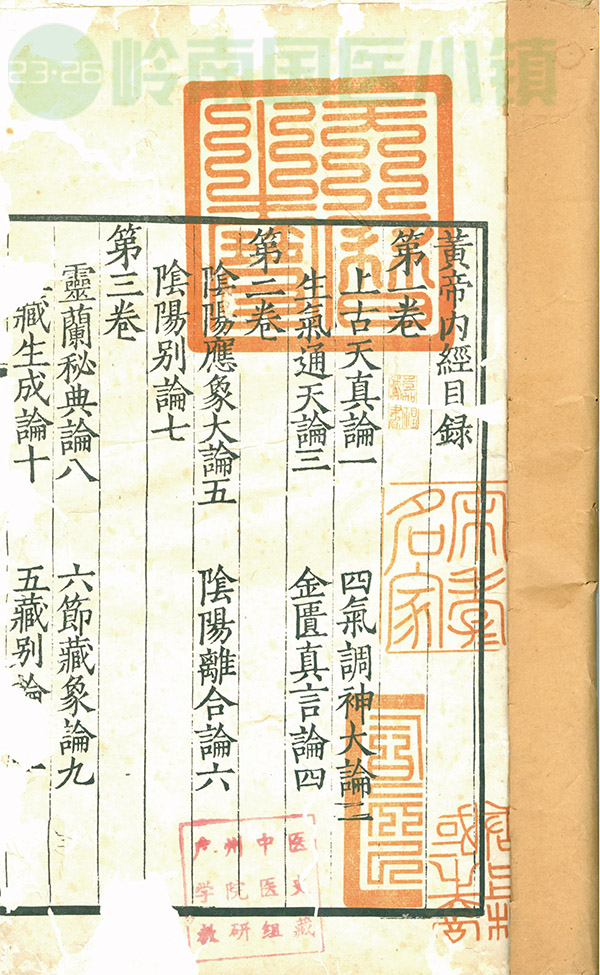 23·26 岭南国医小镇
黃帝内經目録
第一卷
上古天真論一 四氣調神大論二
生氣通天論三 金匱真言論四
第二卷
陰陽應象大論五 陰陽離合論六
陰陽别論七
第三卷
靈蘭秘典論八 六節藏象論九
藏生成論十 五藏别論
名家
广州中医
学院医史
教研組藏